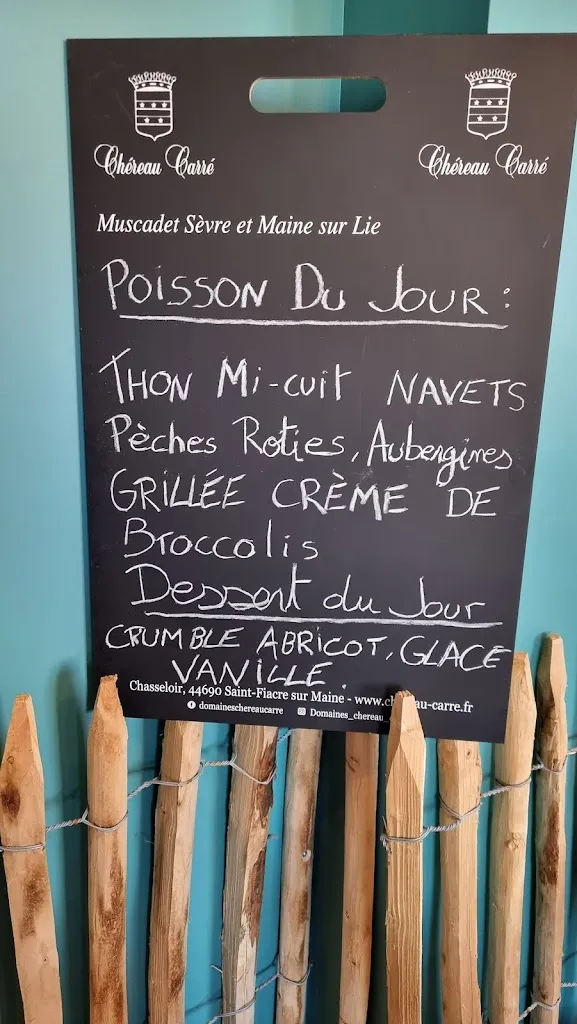 Chéreau Carré
Chéreau Carré
Muscadet Sèvre et Maine sur Lie
POISSON DU JOUR :
THON Mi-cuit NAVETS
Pèches Roties, Aubergines
GRILLÉE CRÈME DE
Broccolis
Dessert du Jour
CRUMBLE ABRICOT, GLACE
VANILLE.
Chasseloir, 44690 Saint-Fiacre sur Maine - www.chereau-carre.fr
domaineschereaucarre Domaines_chereau_